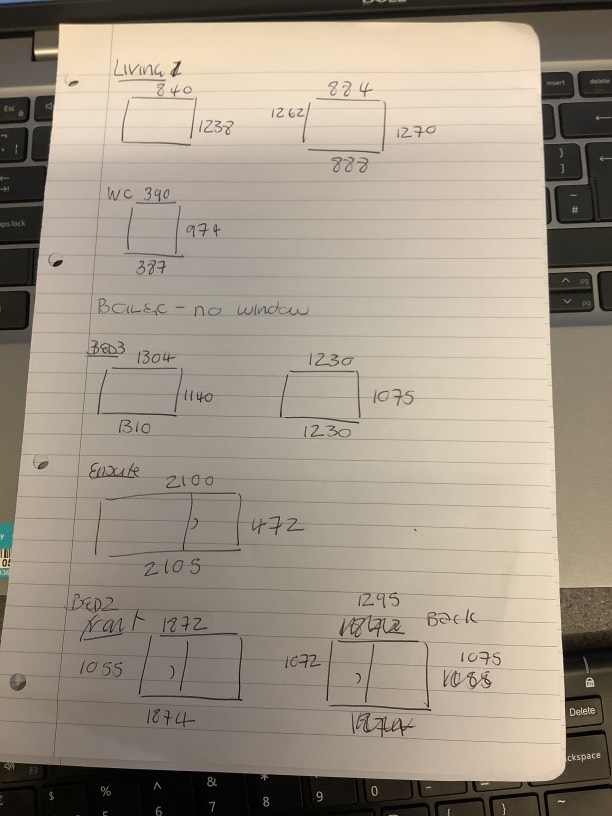 LIVING 1
840
1238
884
1262
1270
888
WC 390
974
387
BOILER - no window
BED3
1304
1140
1310
1230
1075
1230
Ensuite
2100
472
2105
BED2
Front 1872
1055
1874
1295
Back
1072
1075
Delete